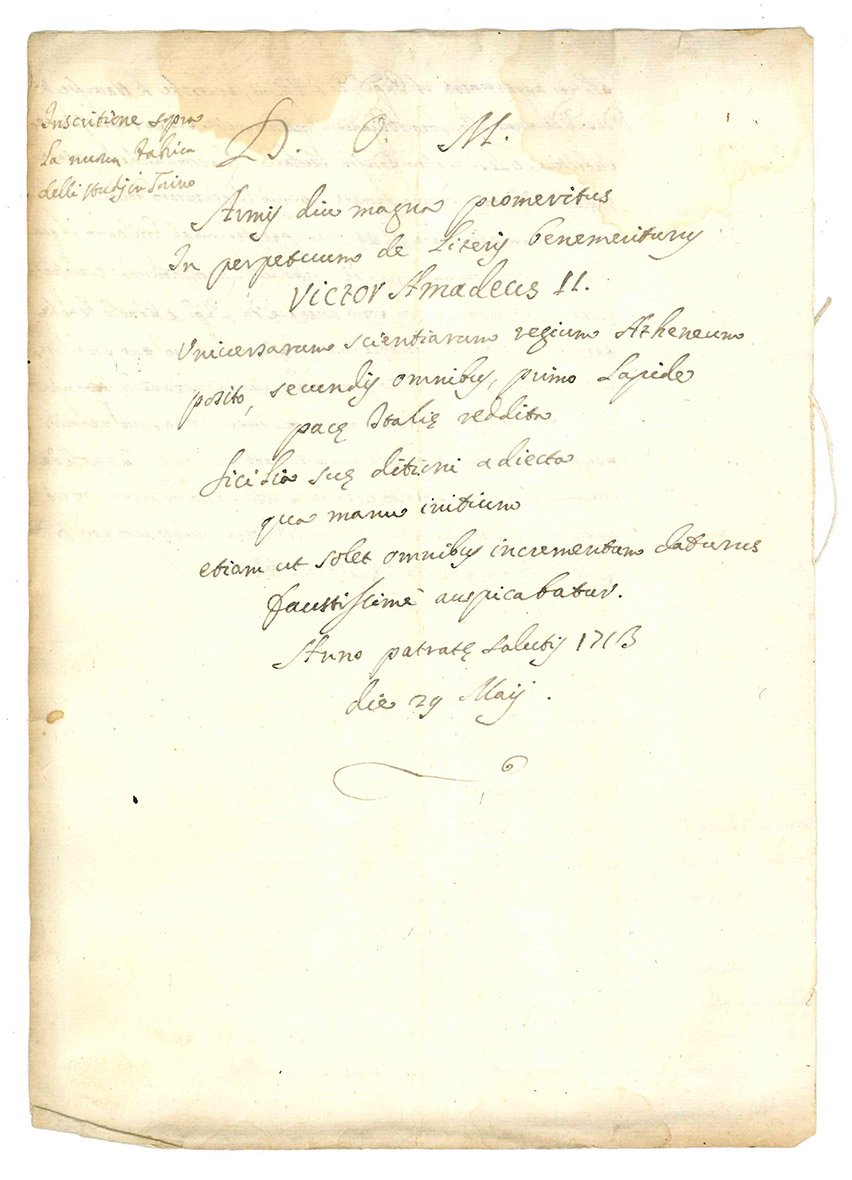 Inscritione sopra
La nuova fabrica
delli studj in Torino
D. O. M.
Armis diu magna promeritus
In perpetuum de Literis benemeriturus
Victor Amadeus II.
Universarum scientiarum regium Atheneum
posito, secundis omnibus, primo Lapide
pacę Italię reddita
Sicilia suę ditioni adiecta
qua manu initium
etiam ut solet omnibus incrementum daturus
faustissimè auspicabatur.
Anno patratę salutis 1713
die 29 Maij.